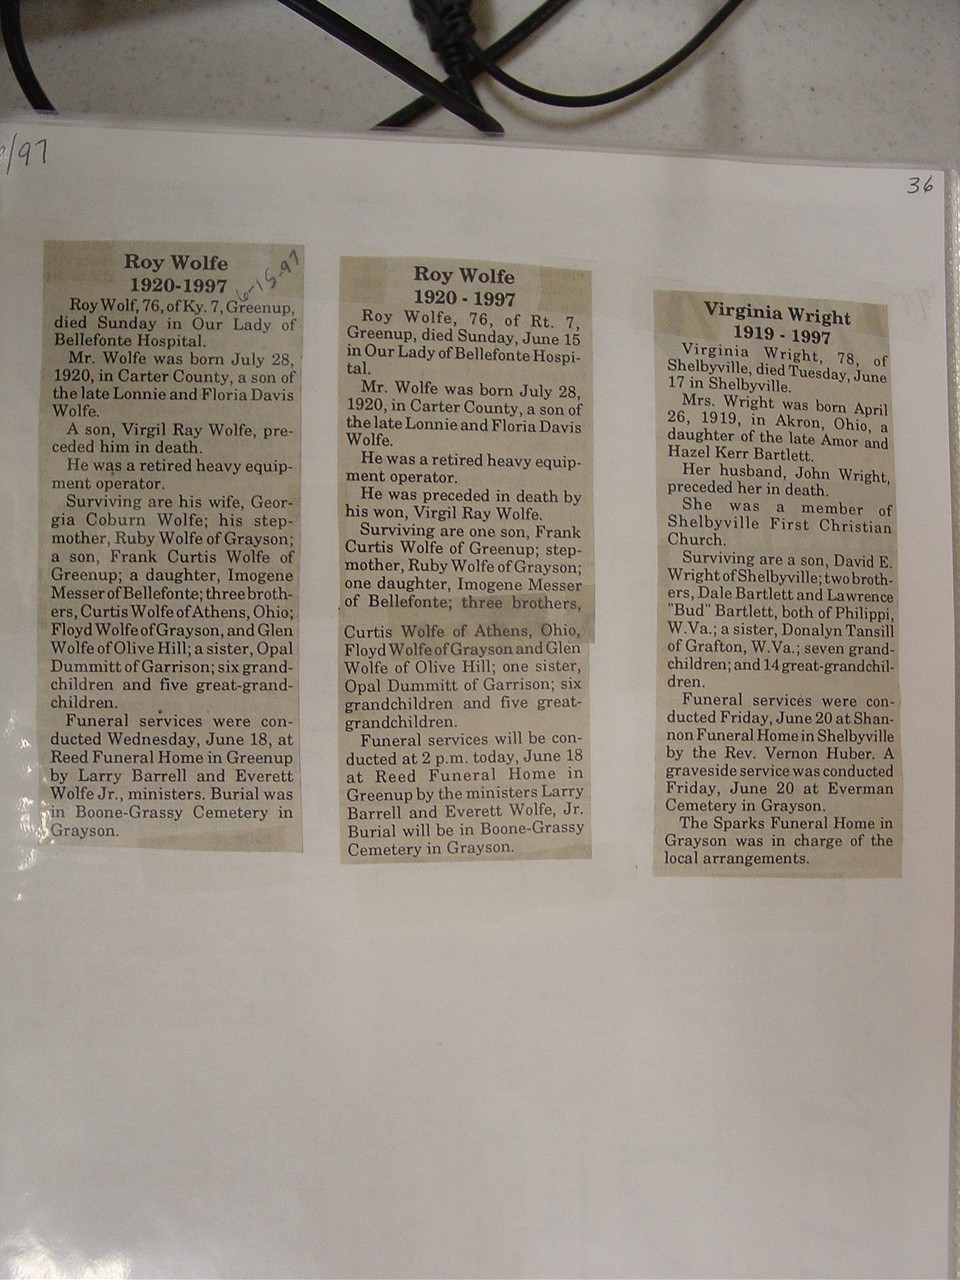 /97
36
Roy Wolfe
1920-1997
6-15-97
Roy Wolf, 76, of Ky. 7, Greenup,
died Sunday in Our Lady of
Bellefonte Hospital.
Mr. Wolfe was born July 28,
1920, in Carter County, a son of
the late Lonnie and Floria Davis
Wolfe.
A son, Virgil Ray Wolfe, pre-
ceded him in death.
He was a retired heavy equip-
ment operator.
Surviving are his wife, Geor-
gia Coburn Wolfe; his step-
mother, Ruby Wolfe of Grayson;
a son, Frank Curtis Wolfe of
Greenup; a daughter, Imogene
Messer of Bellefonte; three broth-
ers, Curtis Wolfe of Athens, Ohio;
Floyd Wolfe of Grayson, and Glen
Wolfe of Olive Hill; a sister, Opal
Dummitt of Garrison; six grand-
children and five great-grand-
children.
Funeral services were con-
ducted Wednesday, June 18, at
Reed Funeral Home in Greenup
by Larry Barrell and Everett
Wolfe Jr., ministers. Burial was
in Boone-Grassy Cemetery in
Grayson.
Roy Wolfe
1920 - 1997
Roy Wolfe, 76, of Rt. 7,
Greenup, died Sunday, June 15
in Our Lady of Bellefonte Hospi-
tal.
Mr. Wolfe was born July 28,
1920, in Carter County, a son of
the late Lonnie and Floria Davis
Wolfe.
He was a retired heavy equip-
ment operator.
He was preceded in death by
his won, Virgil Ray Wolfe.
Surviving are one son, Frank
Curtis Wolfe of Greenup; step-
mother, Ruby Wolfe of Grayson;
one daughter, Imogene Messer
of Bellefonte; three brothers,
Curtis Wolfe of Athens, Ohio,
Floyd Wolfe of Grayson and Glen
Wolfe of Olive Hill; one sister,
Opal Dummitt of Garrison; six
grandchildren and five great-
grandchildren.
Funeral services will be con-
ducted at 2 p.m. today, June 18
at Reed Funeral Home in
Greenup by the ministers Larry
Barrell and Everett Wolfe, Jr.
Burial will be in Boone-Grassy
Cemetery in Grayson.
Virginia Wright
1919 - 1997
Virginia Wright, 78, of
Shelbyville, died Tuesday, June
17 in Shelbyville.
Mrs. Wright was born April
26, 1919, in Akron, Ohio, a
daughter of the late Amor and
Hazel Kerr Bartlett.
Her husband, John Wright,
preceded her in death.
She was a member of
Shelbyville First Christian
Church.
Surviving are a son, David E.
Wright of Shelbyville; two broth-
ers, Dale Bartlett and Lawrence
"Bud" Bartlett, both of Philippi,
W.Va.; a sister, Donalyn Tansill
of Grafton, W.Va.; seven grand-
children; and 14 great-grandchil-
dren.
Funeral services were con-
ducted Friday, June 20 at Shan-
non Funeral Home in Shelbyville
by the Rev. Vernon Huber. A
graveside service was conducted
Friday, June 20 at Everman
Cemetery in Grayson.
The Sparks Funeral Home in
Grayson was in charge of the
local arrangements.